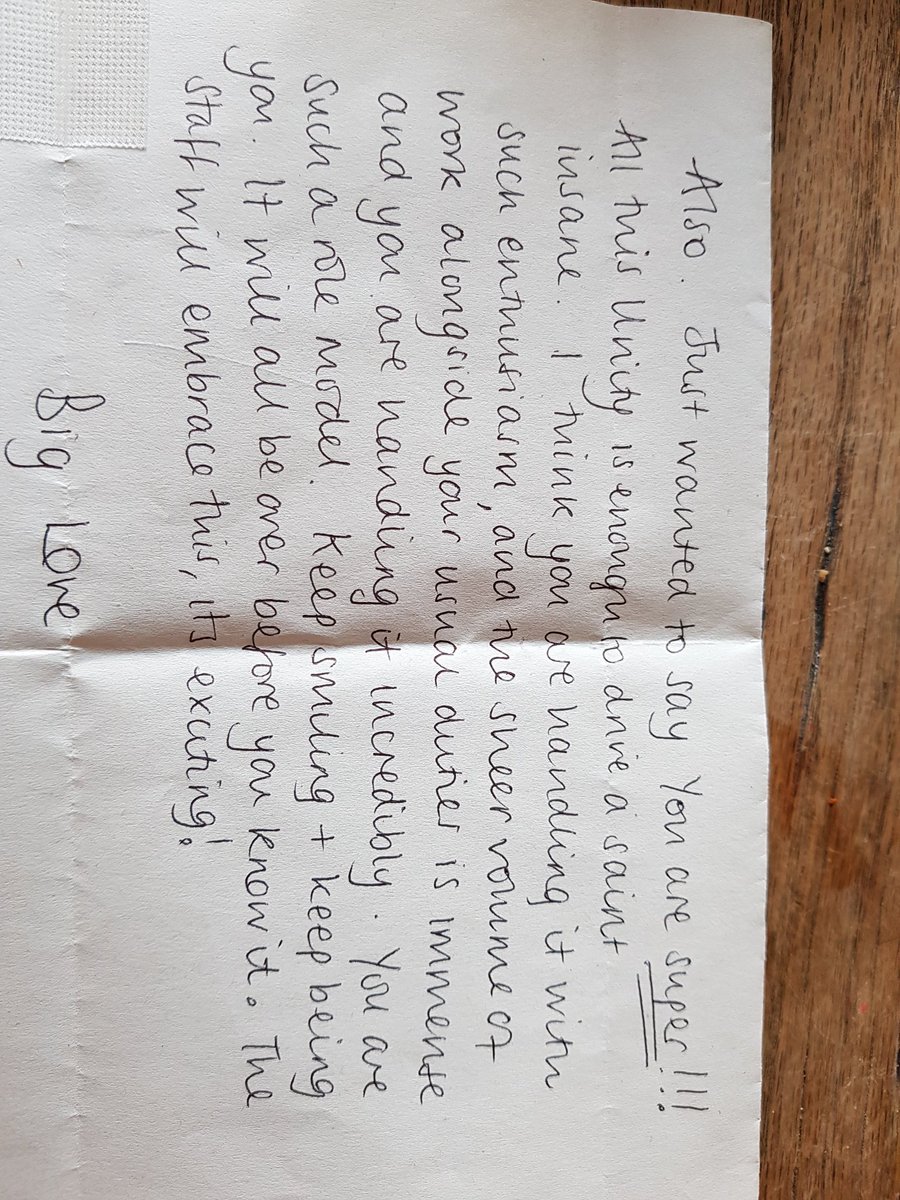 Also. Just wanted to say You are super!!!
All this Unity is enough to drive a saint
insane. I think you are handling it with
such enthusiasm, and the sheer volume of
work alongside your usual duties is immense
and you are handling it incredibly. You are
such a role model. Keep smiling + keep being
you. It will all be over before you know it. The
staff will embrace this, its exciting!
Big Love